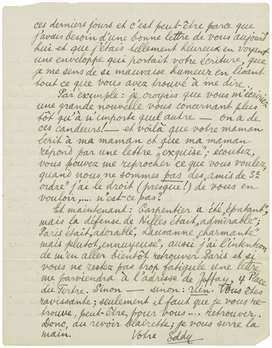 ces derniers jours et c'est peut-être parce que
j'avais besoin d'une bonne lettre de vous aujourd'
hui et que j'étais tellement heureux en voyant
une enveloppe qui portait votre écriture, que
je me sens de si mauvaise humeur en lisant
tout ce que vous avez trouvé à me dire.
Par exemple: je croyais que vous m'écririez
une grande nouvelle vous concernant plus
tôt qu'à n'importe quel autre — on a de
ces candeurs! — et voilà que votre maman
écrit à ma maman et que ma maman
répons par une lettre "exquise"; écoute,
vous pouvez me reprocher ce que vous voulez,
quand nous ne sommes pas des amis de 5e
ordre j'ai le droit (presque!) de vous en
vouloir,... n'est-ce pas?
Et maintenant: Carpentier a été "épatant"
mais la défense de Nilles était "admirable";
Paris était "adorable", Lausanne "charmante"
mais plutôt "ennuyeuse", aussi j'ai l'intention
de m'en aller bientôt retrouver Paris et si
vous ne restez pas trop fatiguée une lettre
me parviendra à l'adresse de 4 Place
du Tertre. Sinon — sinon: rien. Vous êtes
ravissante; seulement il faut que je vous re-
trouve, peut-être, pour vous.... retrouver.
Donc, du revoir Clairette; je vous serre la
main.
Votre Eddy